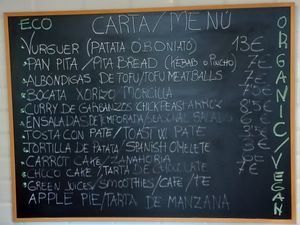 ECO CARTA/MENÚ
VURGUER (PATATA O BONIATO) 13€
PAN PITA / PITA BREAD (KEBAB O PINCHO) 7€
ALBONDIGAS DE TOFU/TOFU MEATBALLS 7€
BOCATA XORIZO MORCILLA 7€
CURRY DE GARBANZOS CHICKPEAS+ARROZ 8,5€
ENSALADAS DE TEMPORADA/SEASONAL SALADS 6€
TOSTA CON PATE/TOAST W. PATE
TORTILLA DE PATATA SPANISH OMELETE
CARROT CAKE/ZANAHORIA
CHOCO CAKE/TARTA DE CHOCOLATE 7€
GREEN JUICES/SMOOTHIES/CAFE/TE
APPLE PIE/TARTA DE MANZANA
ORGANIC/VEGAN